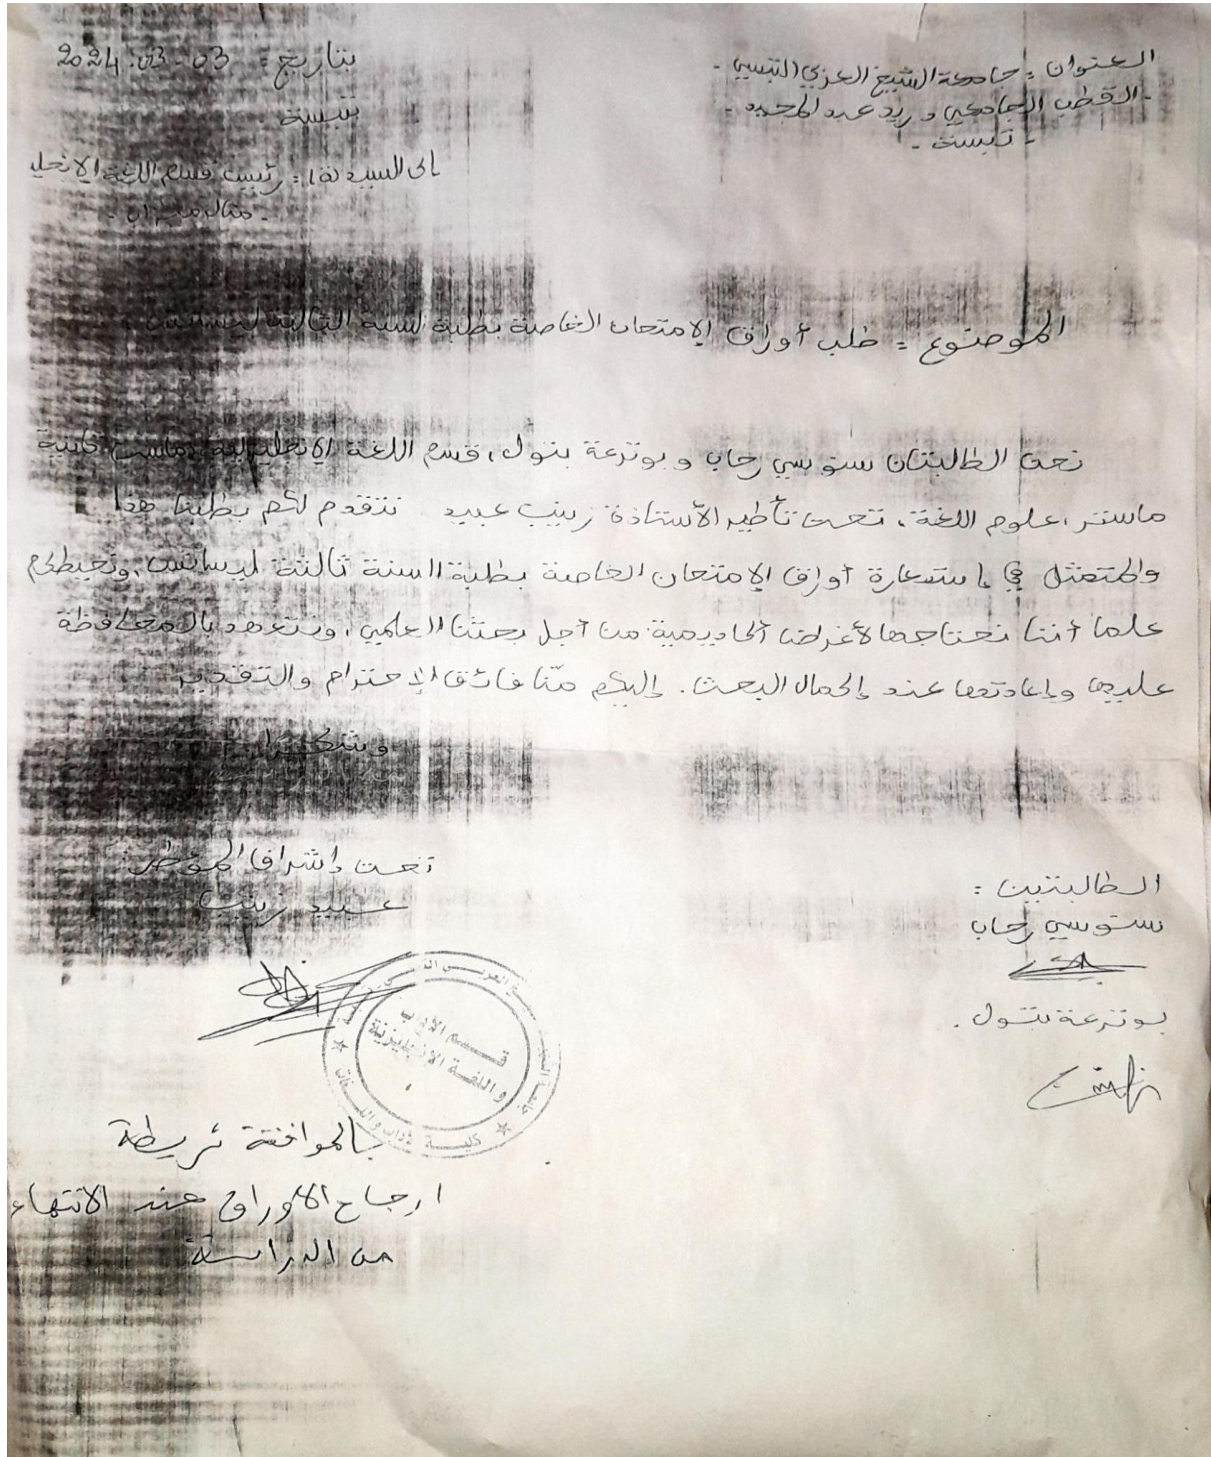 العنوان: جامعة الشيخ العربي التبسي -
- القطب الجامعي دريد عبد المجيد -
- تبسة -
بتاريخ: 03-03-2024
تبسة
إلى السيد (ة): رئيس قسم اللغة الإنجلي
الموضوع: طلب أوراق الامتحان الخاصة بطلبة السنة الثالثة ليسانس
نحن الطالبتان سنوسي رحاب و بوترعة بتول، قسم اللغة الإنجليزية، ماستر ثانية
ماستر، علوم اللغة، تحت تأطير الأستاذة زينب عبيد. نتقدم لكم بطلبنا هذا
والمتمثل في استعارة أوراق الامتحان الخاصة بطلبة السنة ثالثة ليسانس، ونحيطكم
علما أننا نحتاجها لأغراض أكاديمية من أجل بحثنا العلمي، ونتعهد بالمحافظة
عليها وإعادتها عند إكمال البحث. إليكم منّا فائق الإحترام والتقدير
وشكرا.
الطالبتين:
سنوسي رحاب
بوترعة بتول.
تحت إشراف المؤطر:
عبيد زينب
قسم الآداب
واللغة الإنجليزية
كلية الآداب واللغات
بالموافقة شريطة
ارجاع الأوراق عند الانتهاء
من الدراسة